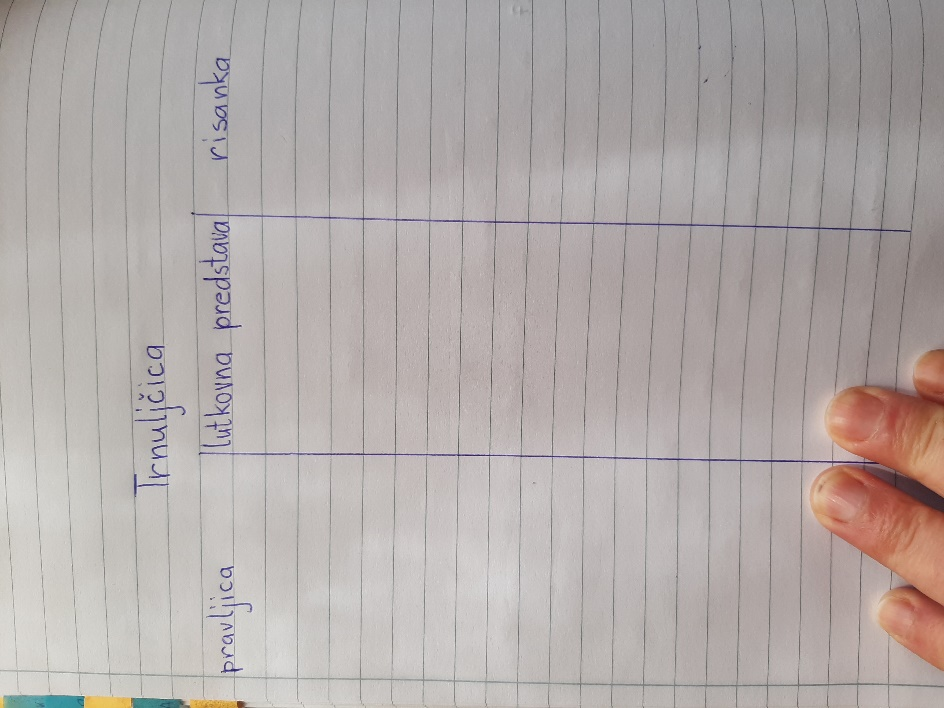 Trnuljčica
pravljica lutkovna predstava risanka